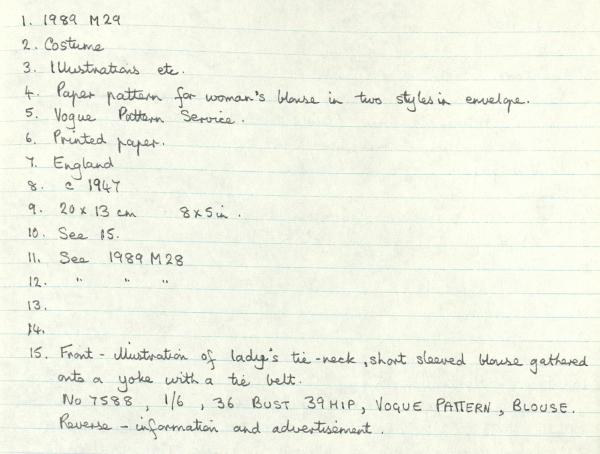 1. 1989 M29
2. Costume
3. Illustrations etc.
4. Paper pattern for woman's blouse in two styles in envelope.
5. Vogue Pattern Service.
6. Printed paper.
7. England
8. c 1947
9. 20 x 13 cm 8 x 5 in.
10. See 15.
11. See 1989 M28
12. " " "
13.
14.
15. Front - illustration of lady's tie-neck, short sleeved blouse gathered
onto a yoke with a tie belt.
No 7588, 1/6, 36 BUST 39 HIP, VOGUE PATTERN, BLOUSE.
Reverse - information and advertisement.